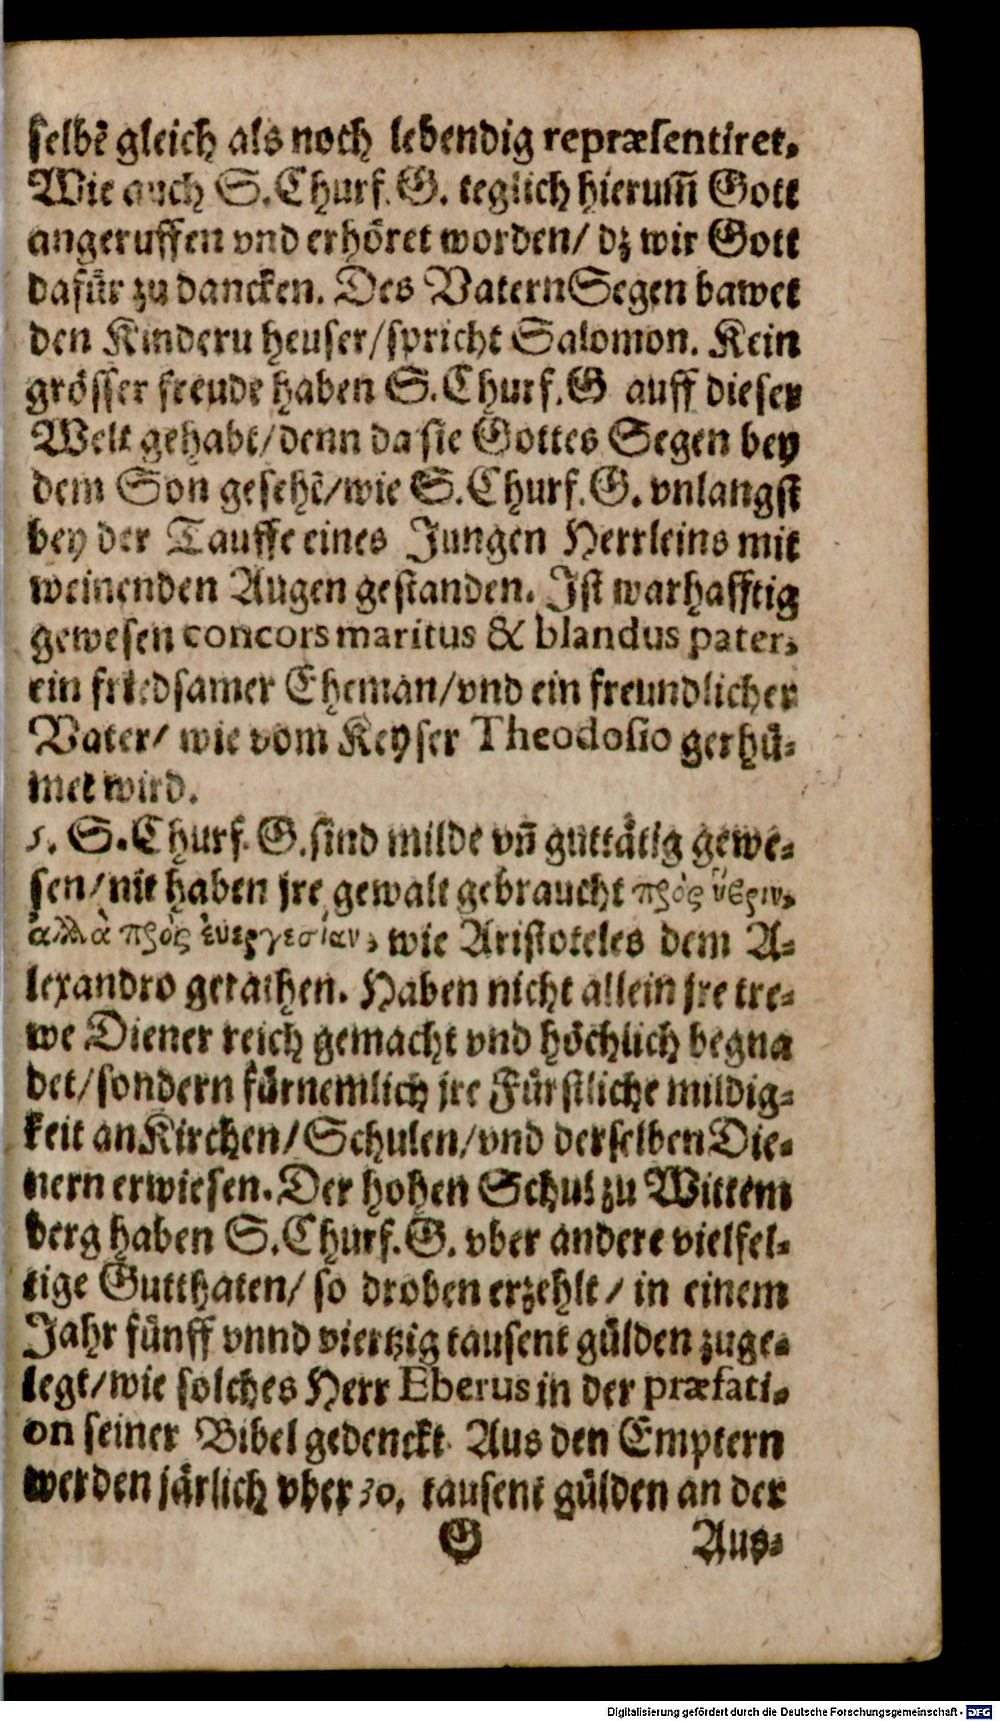 selbẽ gleich als noch lebendig repræsentiret,
Wie auch S. Churf. G. teglich hierum̃ Gott
angeruffen vnd erhöret worden/ dz wir Gott
dafür zu dancken. Des Vatern Segen bawet
den Kinderu heuser/ spricht Salomon. Kein
grösser freude haben S. Churf. G auff dieser
Welt gehabt/ denn da sie Gottes Segen bey
dem Son gesehẽ/ wie S. Churf. G. vnlangst
bey der Tauffe eines Jungen Herrleins mit
weinenden Augen gestanden. Ist warhafftig
gewesen concors maritus & blandus pater,
ein friedsamer Eheman/ vnd ein freundlicher
Vater/ wie vom Keyser Theodosio gerhü-
met wird.
5. S. Churf. G. sind milde vñ guttätig gewe-
sen/ nit haben jre gewalt gebraucht πρὸς ὕβριν,
ἀλλὰ πρὸς ἐυεργεσίαν, wie Aristoteles dem A-
lexandro gerathen. Haben nicht allein jre tre-
we Diener reich gemacht vnd höchlich begna
det/ sondern fürnemlich jre Fürstliche mildig-
keit an Kirchen/ Schulen/ vnd derselben Die-
nern erwiesen. Der hohen Schul zu Wittem
berg haben S. Churf. G. vber andere vielfel-
tige Gutthaten/ so droben erzehlt/ in einem
Jahr fünff vnnd viertzig tausent gülden zuge-
legt/ wie solches Herr Eberus in der præfati-
on seiner Bibel gedenckt. Aus den Emptern
werden järlich vber 30. tausent gülden an der
G Aus-
Digitalisierung gefördert durch die Deutsche Forschungsgemeinschaft - DFG